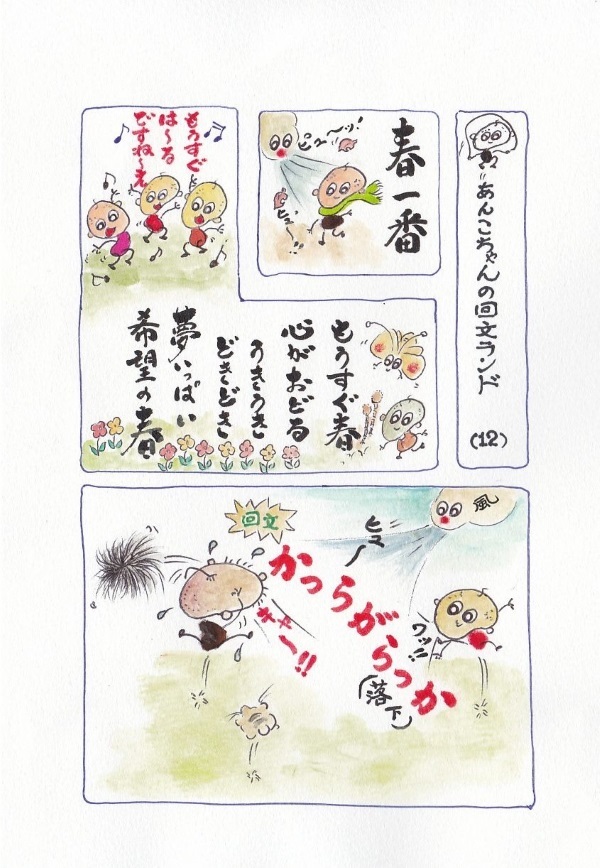 あんこちゃんの回文ランド
(12)
春一番
ピュ〜ッ!
ヒュ〜!
もうすぐ
は〜る
ですね〜え
もうすぐ春
心がおどる
うきうき
どきどき
夢いっぱい
希望の春
風
ヒュー
回文
かつらがらっか
(落下)
ワッ!!
キャー!!